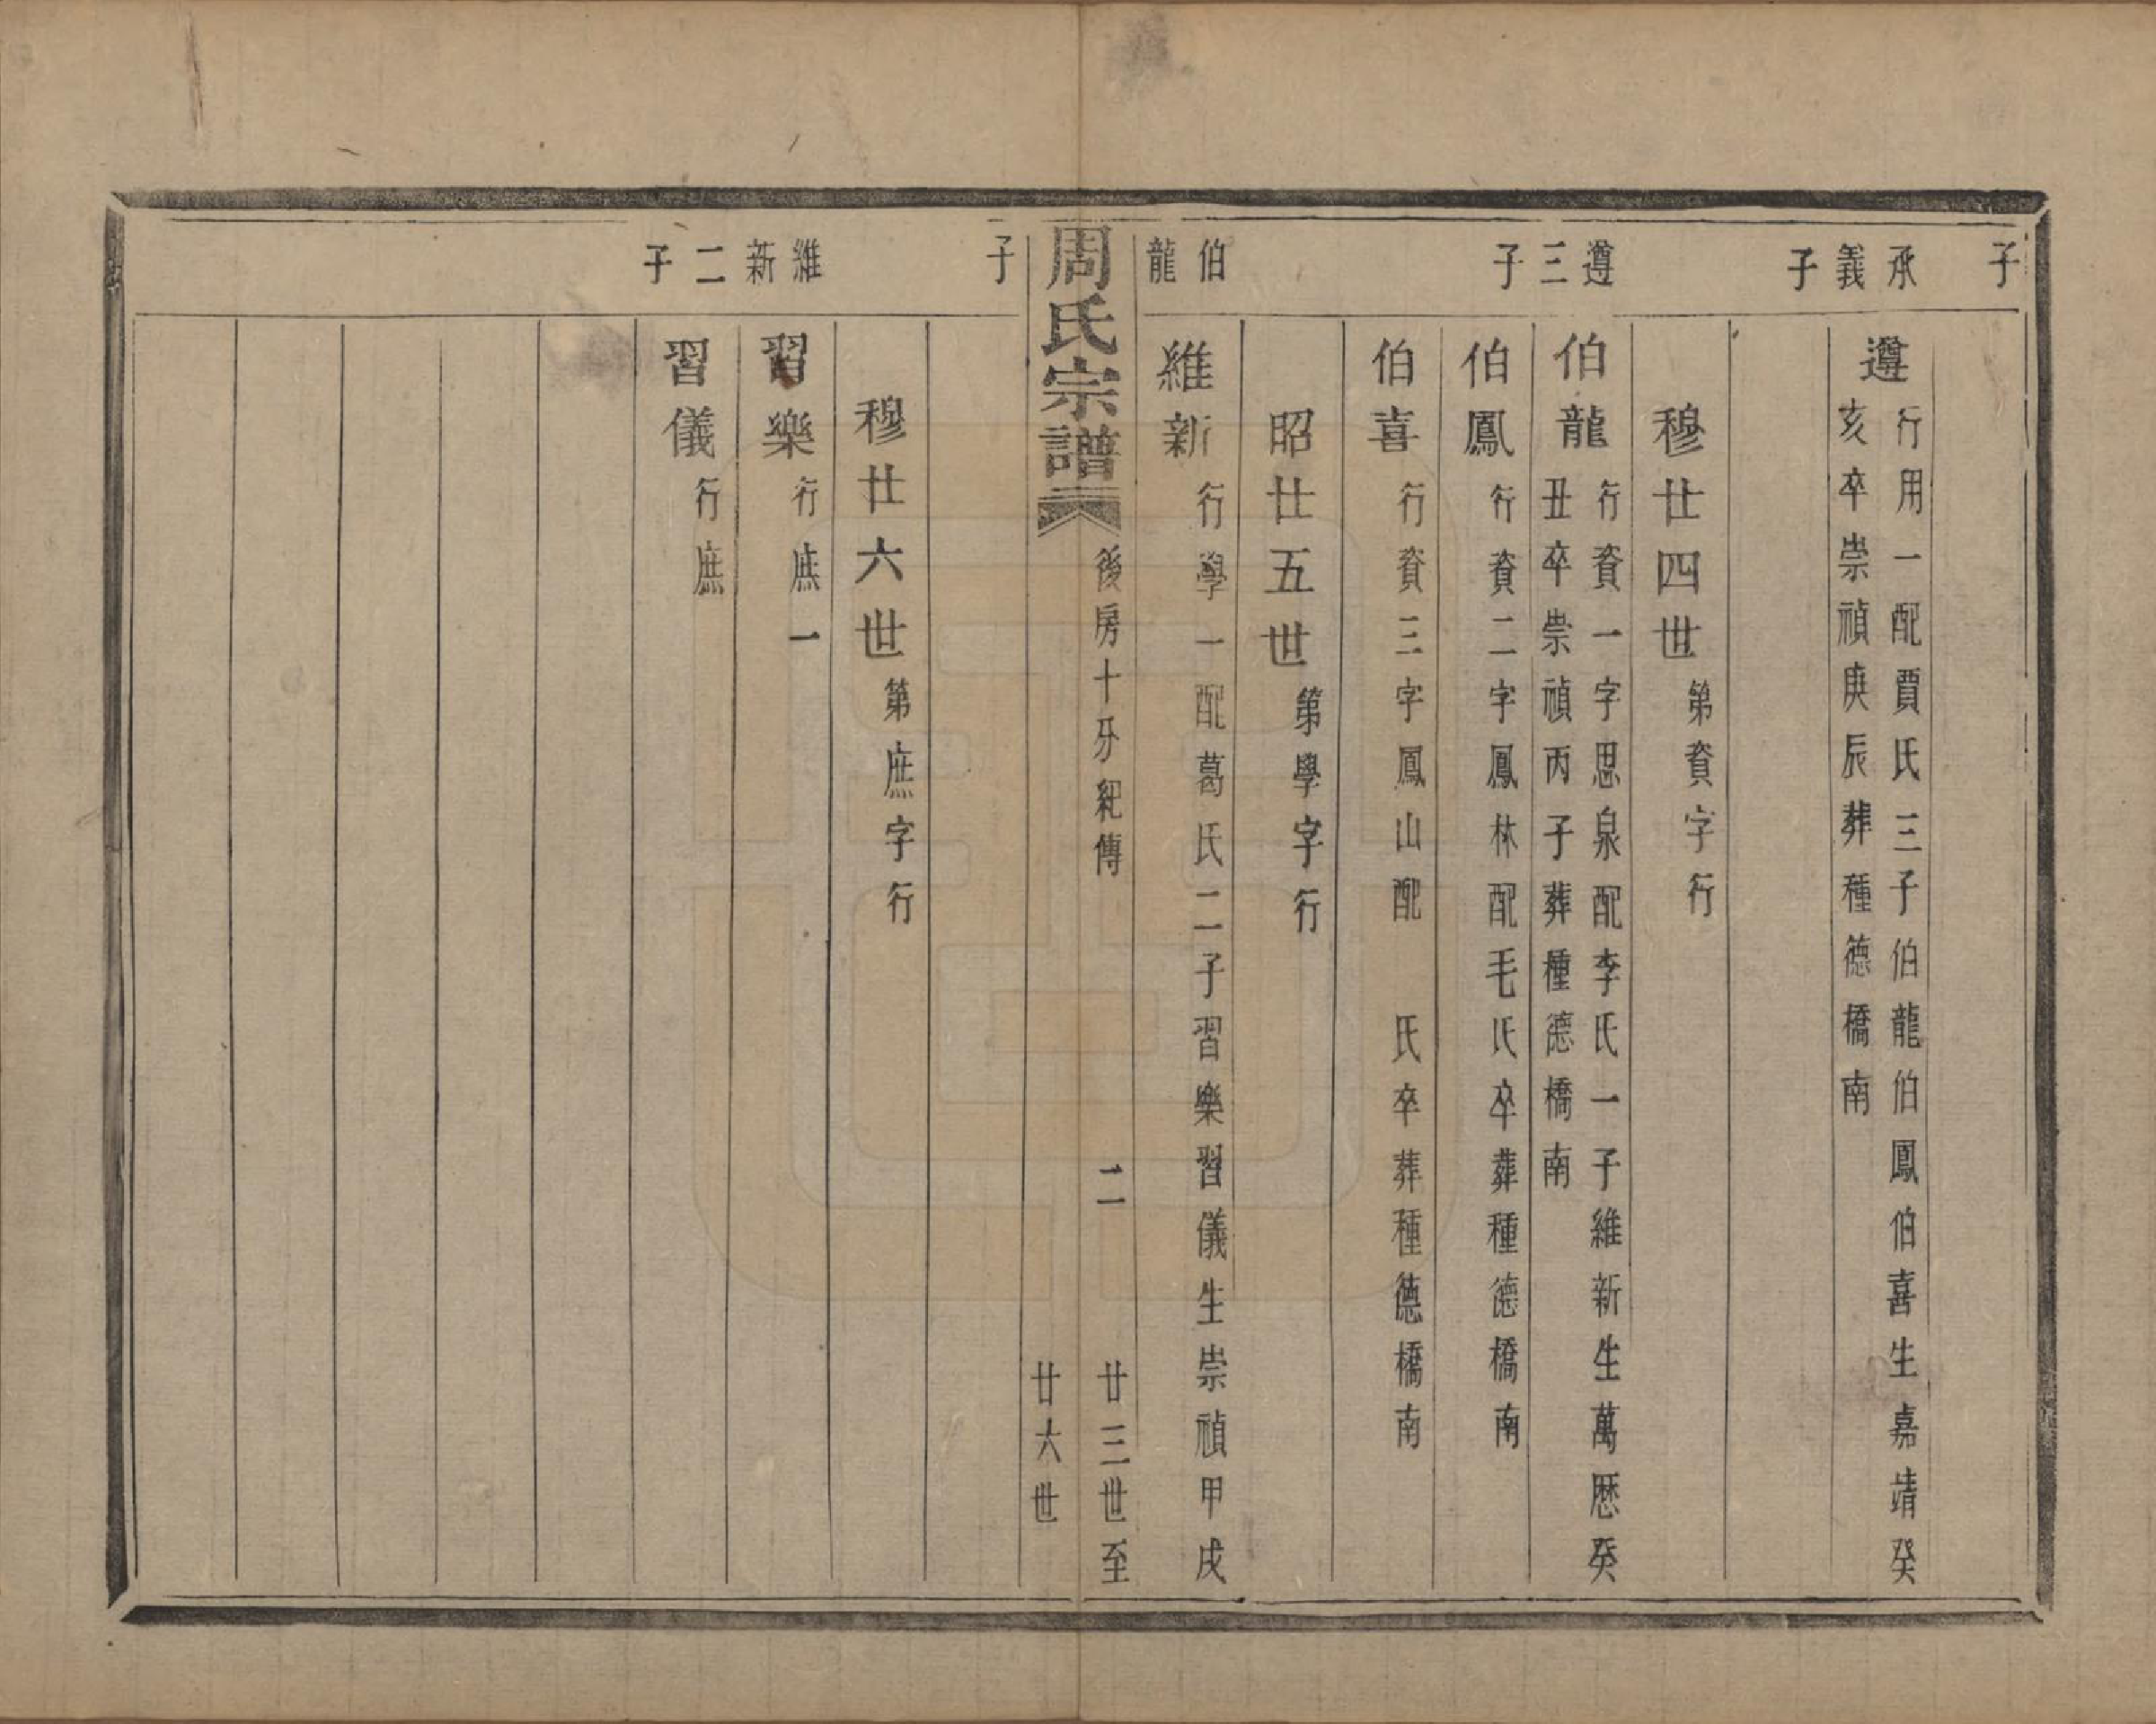 子
承義子
遵
行用一配賈氏三子伯龍伯鳳伯喜生嘉靖癸
亥卒崇禎庚辰葬種德橋南
穆廿四世第資字行
遵三子
伯龍
行資一字思泉配李氏一子維新生萬歷癸
丑卒崇禎丙子葬種德橋南
伯鳳行資二字鳳林配毛氏卒葬種德橋南
伯喜行資三字鳳山配　氏卒葬種德橋南
昭廿五世第學字行
伯龍
維新行學一配葛氏二子習樂習儀生崇禎甲戌
周氏宗譜
後房十分紀傳
二
廿三世至
廿六世
子
穆廿六世第庶字行
維新二子
習樂行庶一
習儀行庶